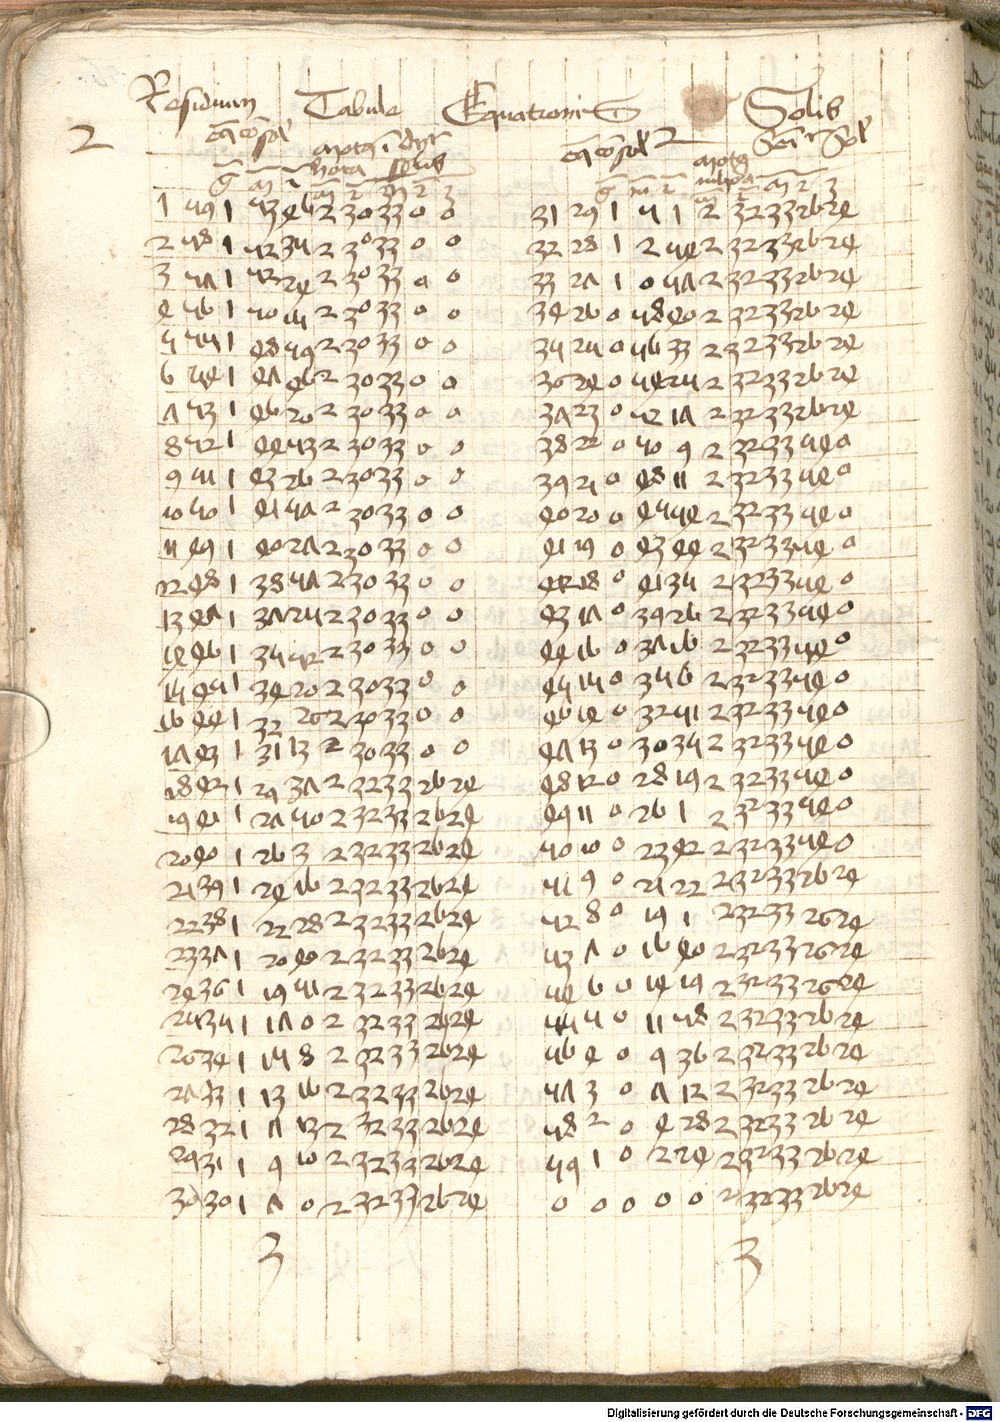 Residuum Tabule Equationis Solis
2 2
g m 2 m 2 m 2 3 g m 2 m 2 m 2 3
1 59 1 53 46 2 30 33 0 0 31 29 1 5 1 2 32 33 26 24
2 58 1 52 35 2 30 33 0 0 32 28 1 2 54 2 32 33 26 24
3 57 1 52 24 2 30 33 0 0 33 27 1 0 57 2 32 33 26 24
4 56 1 50 15 2 30 33 0 0 34 26 0 58 40 2 32 33 26 24
5 55 1 48 59 2 30 33 0 0 35 25 0 56 33 2 32 33 26 24
6 54 1 47 46 2 30 33 0 0 36 24 0 54 25 2 32 33 26 24
7 53 1 46 20 2 30 33 0 0 37 23 0 52 17 2 32 33 26 24
8 52 1 44 53 2 30 33 0 0 38 22 0 50 9 2 32 33 54 0
9 51 1 43 26 2 30 33 0 0 39 21 0 48 11 2 32 33 54 0
10 50 1 41 57 2 30 33 0 0 40 20 0 45 54 2 32 33 54 0
11 49 1 40 27 2 30 33 0 0 41 19 0 43 44 2 32 33 54 0
12 48 1 38 57 2 30 33 0 0 42 18 0 41 35 2 32 33 54 0
13 47 1 37 25 2 30 33 0 0 43 17 0 39 26 2 32 33 54 0
14 46 1 35 52 2 30 33 0 0 44 16 0 37 16 2 32 33 54 0
15 45 1 34 20 2 30 33 0 0 45 15 0 35 6 2 32 33 54 0
16 44 1 32 26 2 30 33 0 0 46 14 0 32 51 2 32 33 54 0
17 43 1 31 13 2 30 33 0 0 47 13 0 30 35 2 32 33 54 0
18 42 1 29 37 2 32 33 26 24 48 12 0 28 19 2 32 33 54 0
19 41 1 27 50 2 32 33 26 24 49 11 0 26 1 2 32 33 54 0
20 40 1 26 3 2 32 33 26 24 50 10 0 23 42 2 32 33 54 0
21 39 1 24 16 2 32 33 26 24 51 9 0 21 22 2 32 33 26 24
22 38 1 22 28 2 32 33 26 24 52 8 0 19 1 2 32 33 26 24
23 37 1 20 40 2 32 33 26 24 53 7 0 16 40 2 32 33 26 24
24 36 1 19 51 2 32 33 26 24 54 6 0 14 19 2 32 33 26 24
25 35 1 17 0 2 32 33 26 24 55 5 0 11 58 2 32 33 26 24
26 34 1 15 8 2 32 33 26 24 56 4 0 9 36 2 32 33 26 24
27 33 1 13 16 2 32 33 26 24 57 3 0 7 12 2 32 33 26 24
28 32 1 11 13 2 32 33 26 24 58 2 0 4 28 2 32 33 26 24
29 31 1 9 10 2 32 33 26 24 59 1 0 2 24 2 32 33 26 24
30 30 1 7 0 2 32 33 26 24 0 0 0 0 0 2 32 33 26 24
3 3
Digitalisierung gefördert durch die Deutsche Forschungsgemeinschaft - DFG